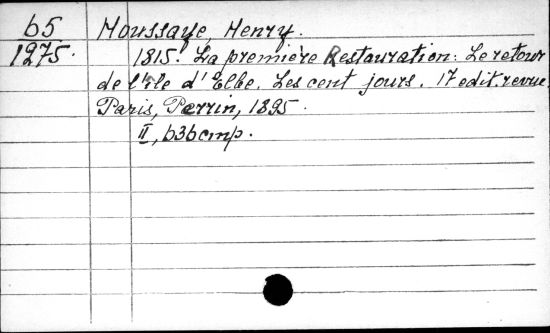 65 Houssaye, Henry.
1275. 1815. La première Restauration. Le retour
de l'île d'Elbe. Les cent jours. 17 edit. revue.
Paris, Perrin, 1895.
II, 636 стр.